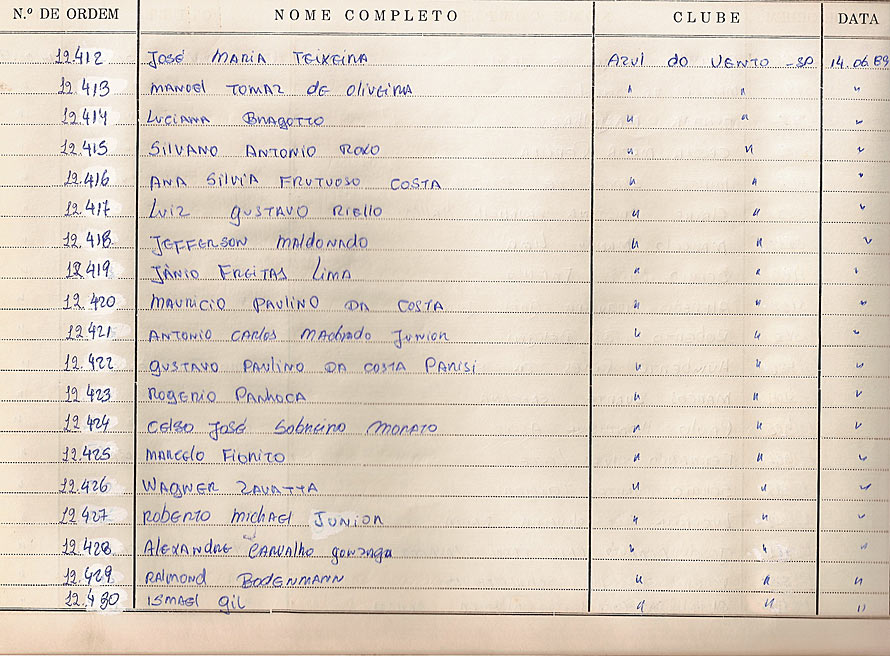 N.º DE ORDEM NOME COMPLETO CLUBE DATA
12.412 JOSÉ MARIA TEIXEIRA AZUL do VENTO - SP 14.06.89
12.413 MANOEL TOMAZ DE OLIVEIRA " " "
12.414 LUCIANA BRAGOTTO " " "
12.415 SILVANO ANTONIO ROXO " " "
12.416 ANA SILVIA FRUTUOSO COSTA " " "
12.417 LUIZ GUSTAVO RIELLO " " "
12.418 JEFFERSON MALDONADO " " "
12.419 JÂNIO FREITAS LIMA " " "
12.420 MAURICIO PAULINO DA COSTA " " "
12.421 ANTONIO CARLOS MACHADO JUNIOR " " "
12.422 GUSTAVO PAULINO DA COSTA PARISI " " "
12.423 ROGERIO PANHOCA " " "
12.424 CELSO JOSÉ SOBREIRO MORATO " " "
12.425 MARCELO FIORITO " " "
12.426 WAGNER ZAVATTA " " "
12.427 ROBERTO MICHAEL JUNIOR " " "
12.428 ALEXANDRE CARVALHO GONZAGA " " "
12.429 RAIMOND BODENMANN " " "
12.430 ISMAEL GIL " " "